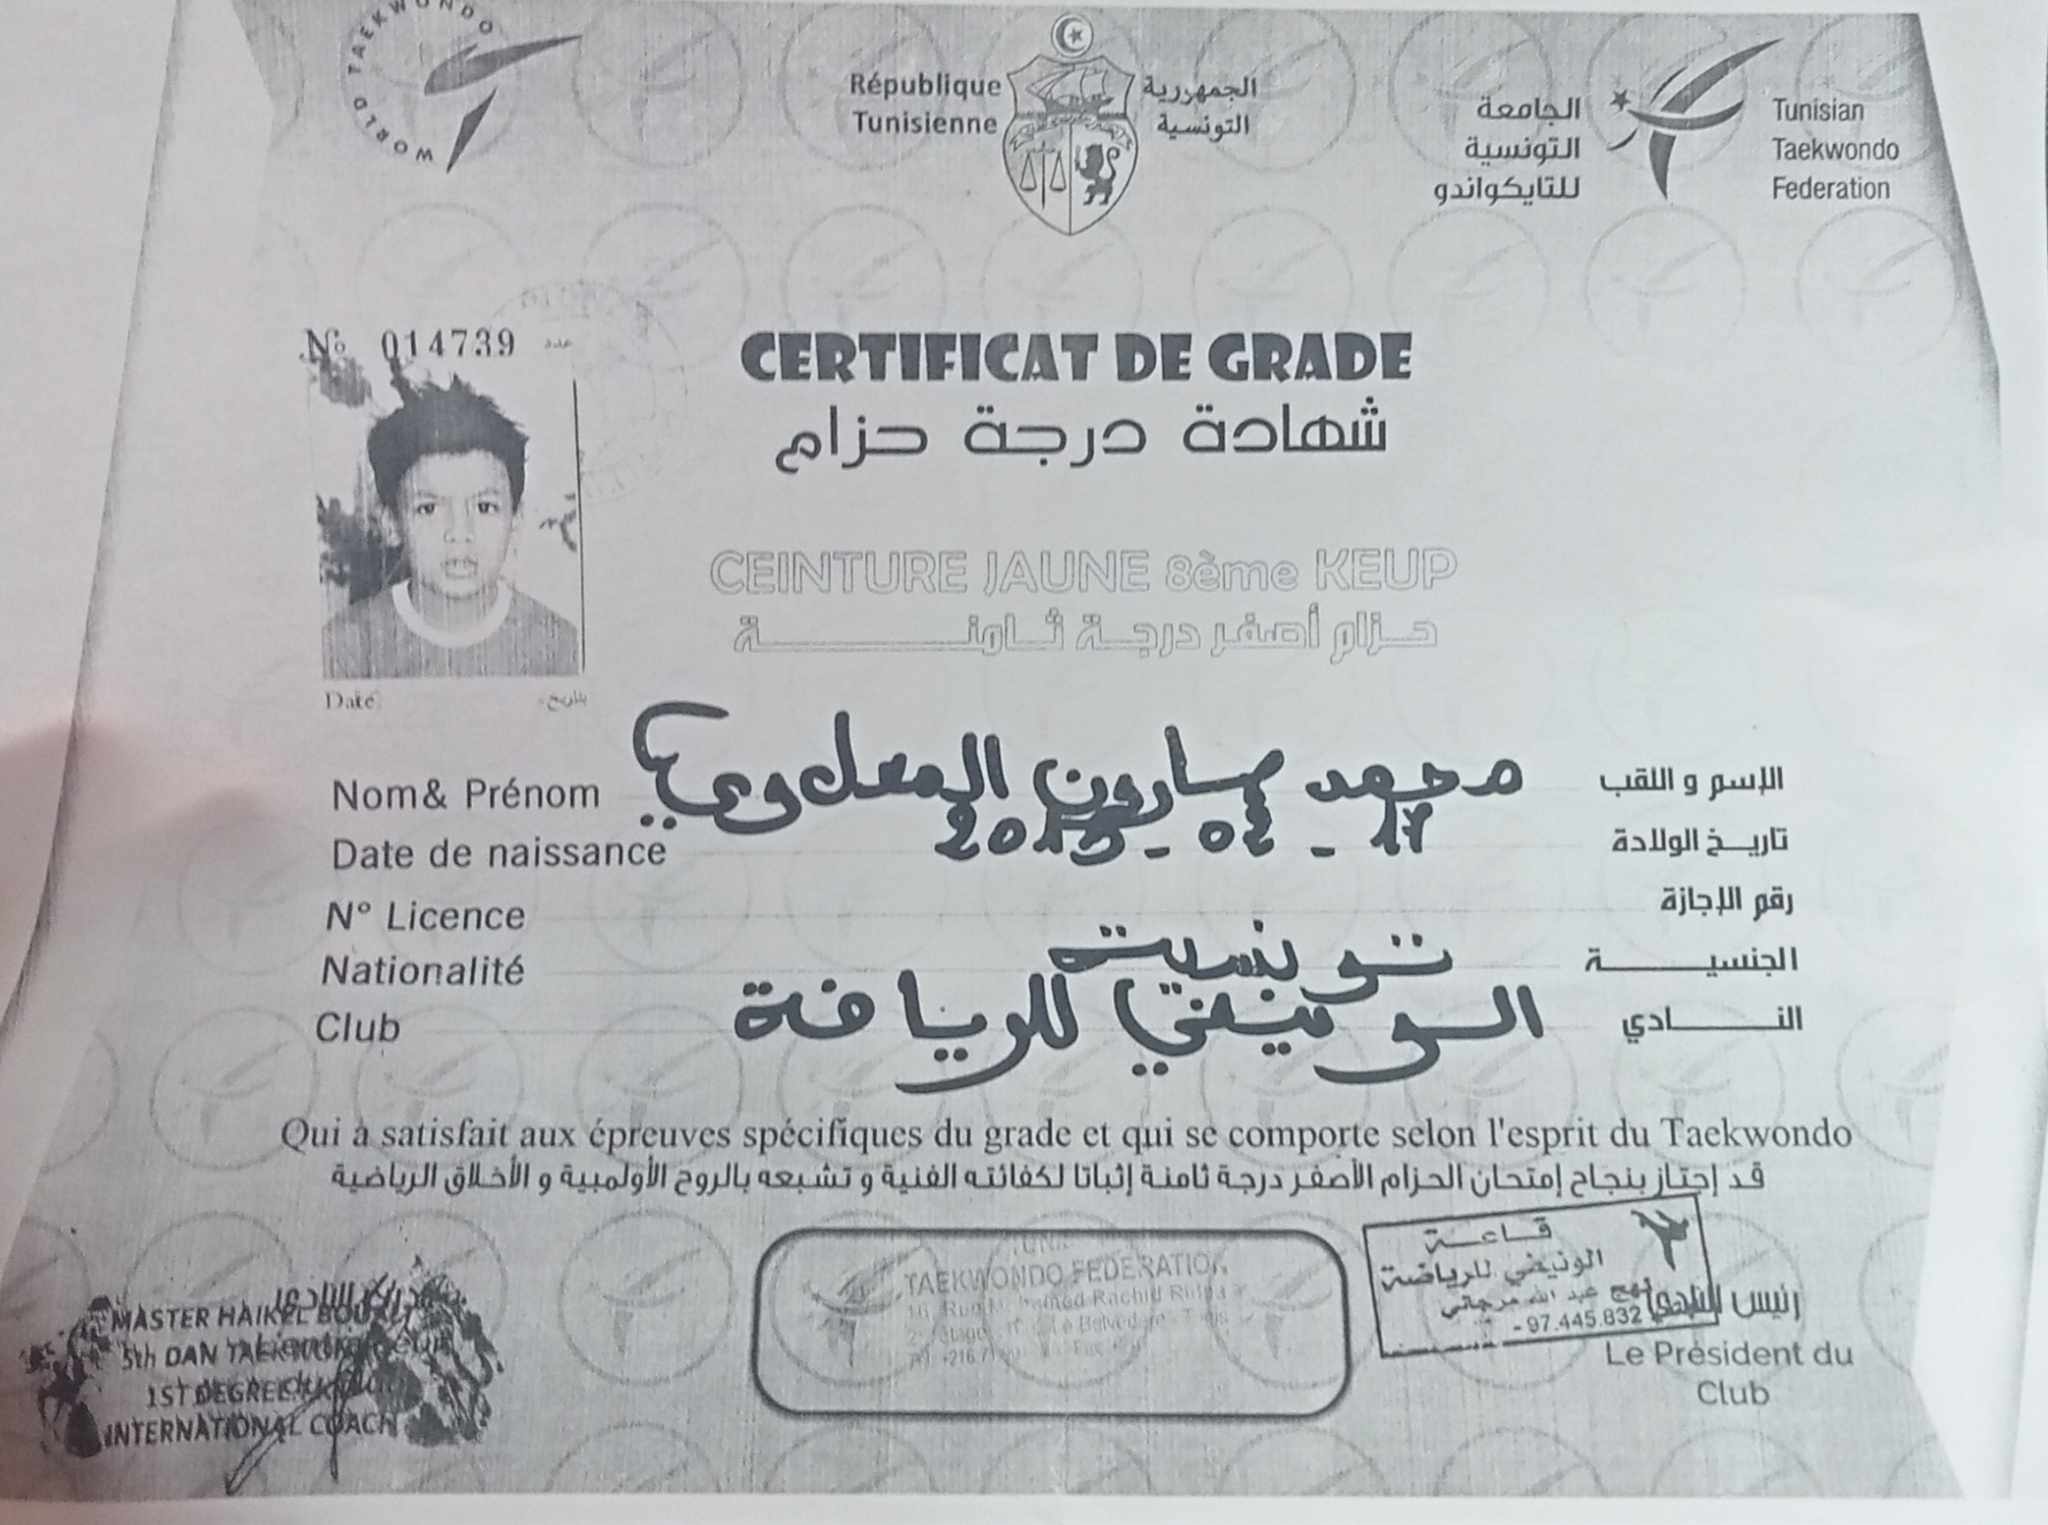 WORLD TAEKWONDO
République
Tunisienne
الجمهورية
التونسية
الجامعة
التونسية
للتايكواندو
Tunisian
Taekwondo
Federation
№ 014739 عدد
CERTIFICAT DE GRADE
شهادة درجة حزام
CEINTURE JAUNE 8ème KEUP
حزام أصفر درجة ثامنة
Date بتاريخ
Nom& Prénom محمد هارون الإسم و اللقب
Date de naissance 17 - 04 - 2013 تاريخ الولادة
N° Licence رقم الإجازة
Nationalité تونسية الجنسية
Club الونيفي للرياضة النادي
Qui à satisfait aux épreuves spécifiques du grade et qui se comporte selon l'esprit du Taekwondo
قد إجتاز بنجاح إمتحان الحزام الأصفر درجة ثامنة إثباتا لكفائته الفنية و تشبعه بالروح الأولمبية و الأخلاق الرياضية
MASTER HAIKEL
5th DAN
1ST DEGREE
INTERNATIONAL COACH
TAEKWONDO FEDERATION
قاعة
الونيفي للرياضة
نهج عبد الله مرجاني
97.445.832 -
رئيس النادي
Le Président du
Club